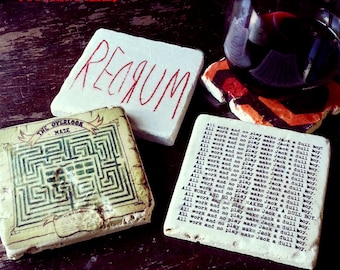 REDRUM
THE OVERLOOK
MAZE
All work and no play make Jack a dull boy.
All work and no play make Jack a dull boy.
All work and no play make Jack a dull boy.
All work and no play make Jack a dull boy.
All work and no play make Jack a dull boy.
All work and no play make Jack a dull boy.
All work and no play make Jack a dull boy.
All work and no play make Jack a dull boy.
All work and no play make Jack a dull boy.
All work and no play make Jack a dull boy.
All work and no play make Jack a dull boy.
All work and no play make Jack a dull boy.